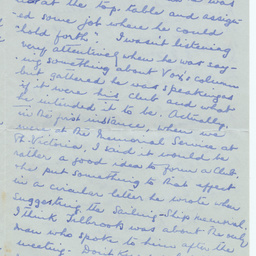 was
not at the top table and assign-
ed some job where he could
"hold forth". I wasn't listening
very attentively when he was say-
ing something about Vox's column
but gathered he was speaking as
if it were his club and what
he intended it to be. Actually,
in the first instance, when we
were at the Memorial Service at
St. Victoria, I said it would be
rather a good idea to form a Club.
He put something to that effect
in a circular letter he wrote when
suggesting the Sailing-Ship Memorial.
I think was about the only
man who spoke to him after the
meeting. Don't